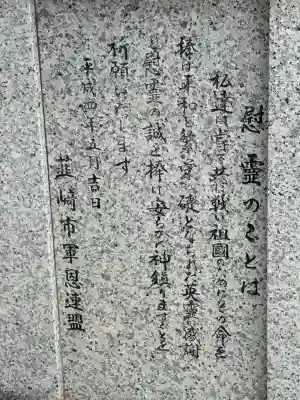 慰霊のことば
私達は嘗て共に戦い祖國のためにその命を
捧げ平和と繁栄の礎となられた英霊に感謝
し慰霊の誠を捧げ安らかに神鎮り座すことを
祈願いたします
平成四年五月吉日
韮崎市軍恩連盟